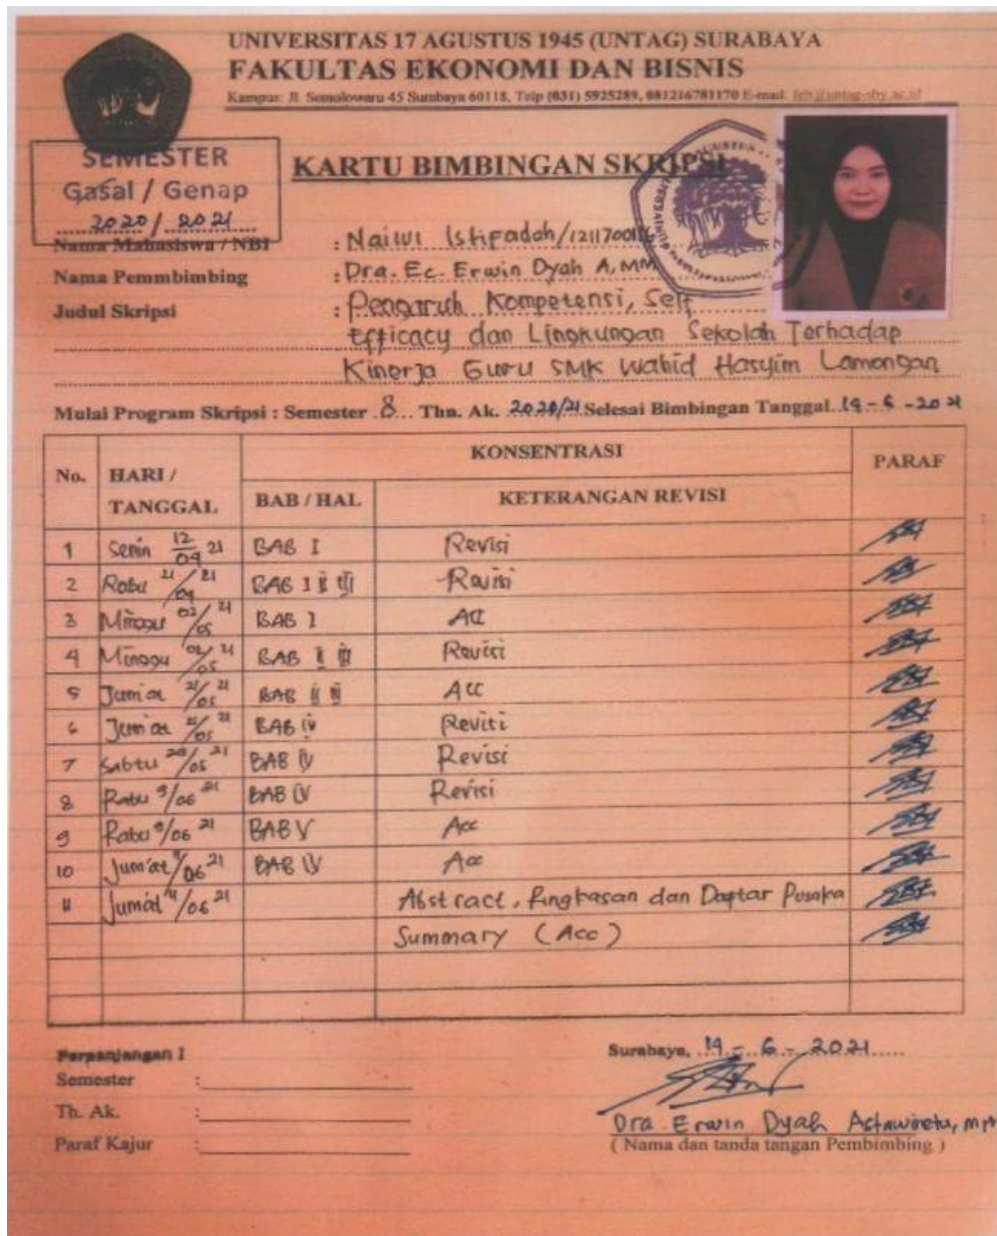 UNIVERSITAS 17 AGUSTUS 1945 (UNTAG) SURABAYA
FAKULTAS EKONOMI DAN BISNIS
Kampus: Jl. Semolowaru 45 Surabaya 60118, Telp (031) 5925289, 081216781170 E-mail: feb@untag-sby.ac.id
SEMESTER
Gasal / Genap
2020 / 2021
KARTU BIMBINGAN SKRIPSI
Nama Mahasiswa / NBI : Nailul Istifadah/12117001
Nama Pemmbimbing : Dra. Ec. Erwin Dyah A, MM
Judul Skripsi : Pengaruh Kompetensi, Self
Efficacy dan Lingkungan Sekolah Terhadap
Kinerja Guru SMK Wahid Hasyim Lamongan
Mulai Program Skripsi : Semester 8 Thn. Ak. 2020/21 Selesai Bimbingan Tanggal 19-6-2021
No. HARI / TANGGAL KONSENTRASI PARAF
BAB / HAL KETERANGAN REVISI
1 Senin 12/04 21 BAB I Revisi
2 Rabu 21/04 21 BAB I II III Revisi
3 Minggu 02/05 21 BAB I Acc
4 Minggu 02/05 21 BAB II III Revisi
5 Jum'at 21/05 21 BAB II III Acc
6 Jum'at 21/05 21 BAB IV Revisi
7 Sabtu /05 21 BAB IV Revisi
8 Rabu 9/06 21 BAB IV Revisi
9 Rabu 9/06 21 BAB V Acc
10 Jum'at 11/06 21 BAB IV Acc
11 Jum'at 11/06 21 Abstract, Ringkasan dan Daptar Pusaka
Summary (Acc)
Perpanjangan I
Semester :
Th. Ak. :
Paraf Kajur :
Surabaya, 19-6-2021
Dra Erwin Dyah Astawinetu, MM
( Nama dan tanda tangan Pembimbing )